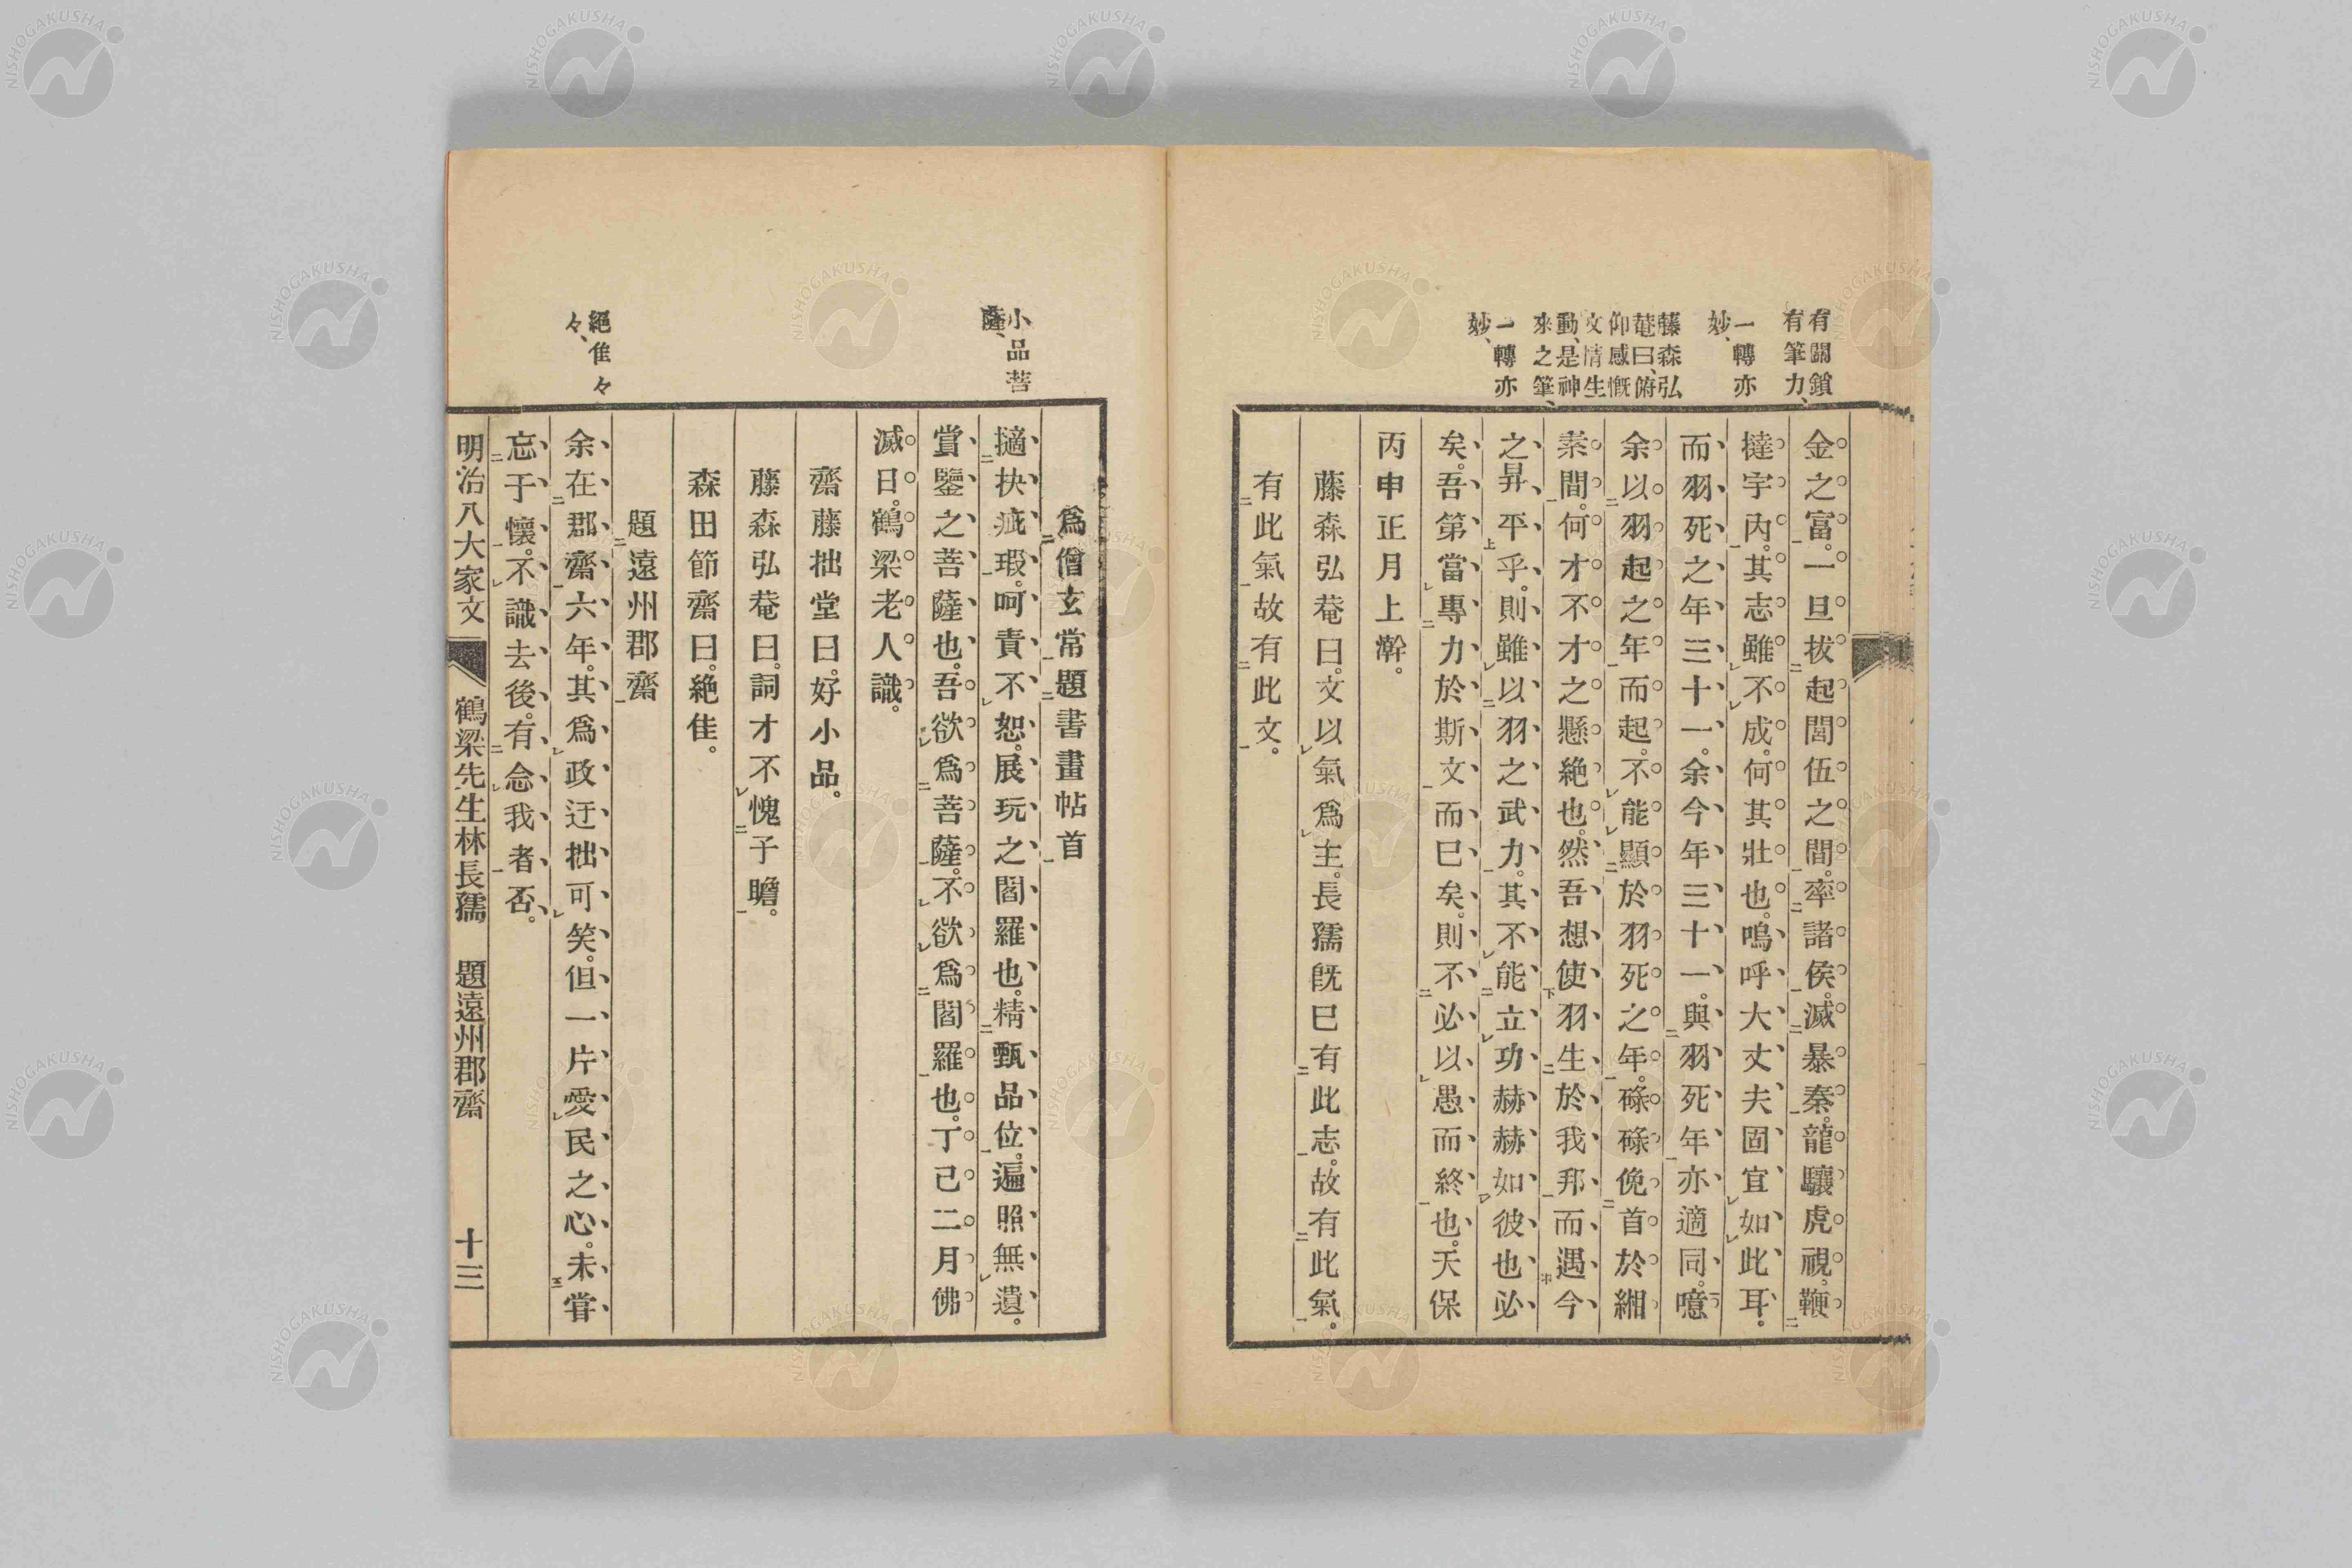 有關鎖
有筆力、
一轉亦
妙、
藤森弘
菴曰、俯
仰感慨
文情生
動、是神
來之筆、
一轉亦
妙、
金之富。一旦拔起閭伍之間。率諸侯。滅暴秦。龍驤虎視。鞭
撻宇內。其志雖不成。何其壯也。嗚呼大丈夫固宜如此耳。
而羽死之年三十一。余今年三十一。與羽死年亦適同。噫
余以羽起之年而起。不能顯於羽死之年。碌碌俛首於緗
素間。何才不才之懸絶也。然吾想使羽生於我邦而遇今
之昇平乎。則雖以羽之武力。其不能立功赫赫如彼也必
矣。吾第當專力於斯文而已矣。則不必以愚而終也。天保
丙申正月上澣。
藤森弘菴曰。文以氣爲主。長孺既已有此志。故有此氣。
有此氣故有此文。
小品菩
薩、
絕佳々
々、
爲僧玄常題書畫帖首
擿抉疵瑕。呵責不恕。展玩之閻羅也。精甄品位。遍照無遺。
賞鑒之菩薩也。吾欲爲菩薩。不欲爲閻羅也。丁巳二月佛
滅日。鶴梁老人識。
齋藤拙堂曰。好小品。
藤森弘菴曰。詞才不愧子瞻。
森田節齋曰。絶佳。
題遠州郡齋
余在郡齋六年。其爲政迂拙可笑。但一片愛民之心。未甞
忘于懷。不識去後。有念我者否。
明治八大家文 鶴梁先生林長孺 題遠州郡齋 十三
NISHOGAKUSHA